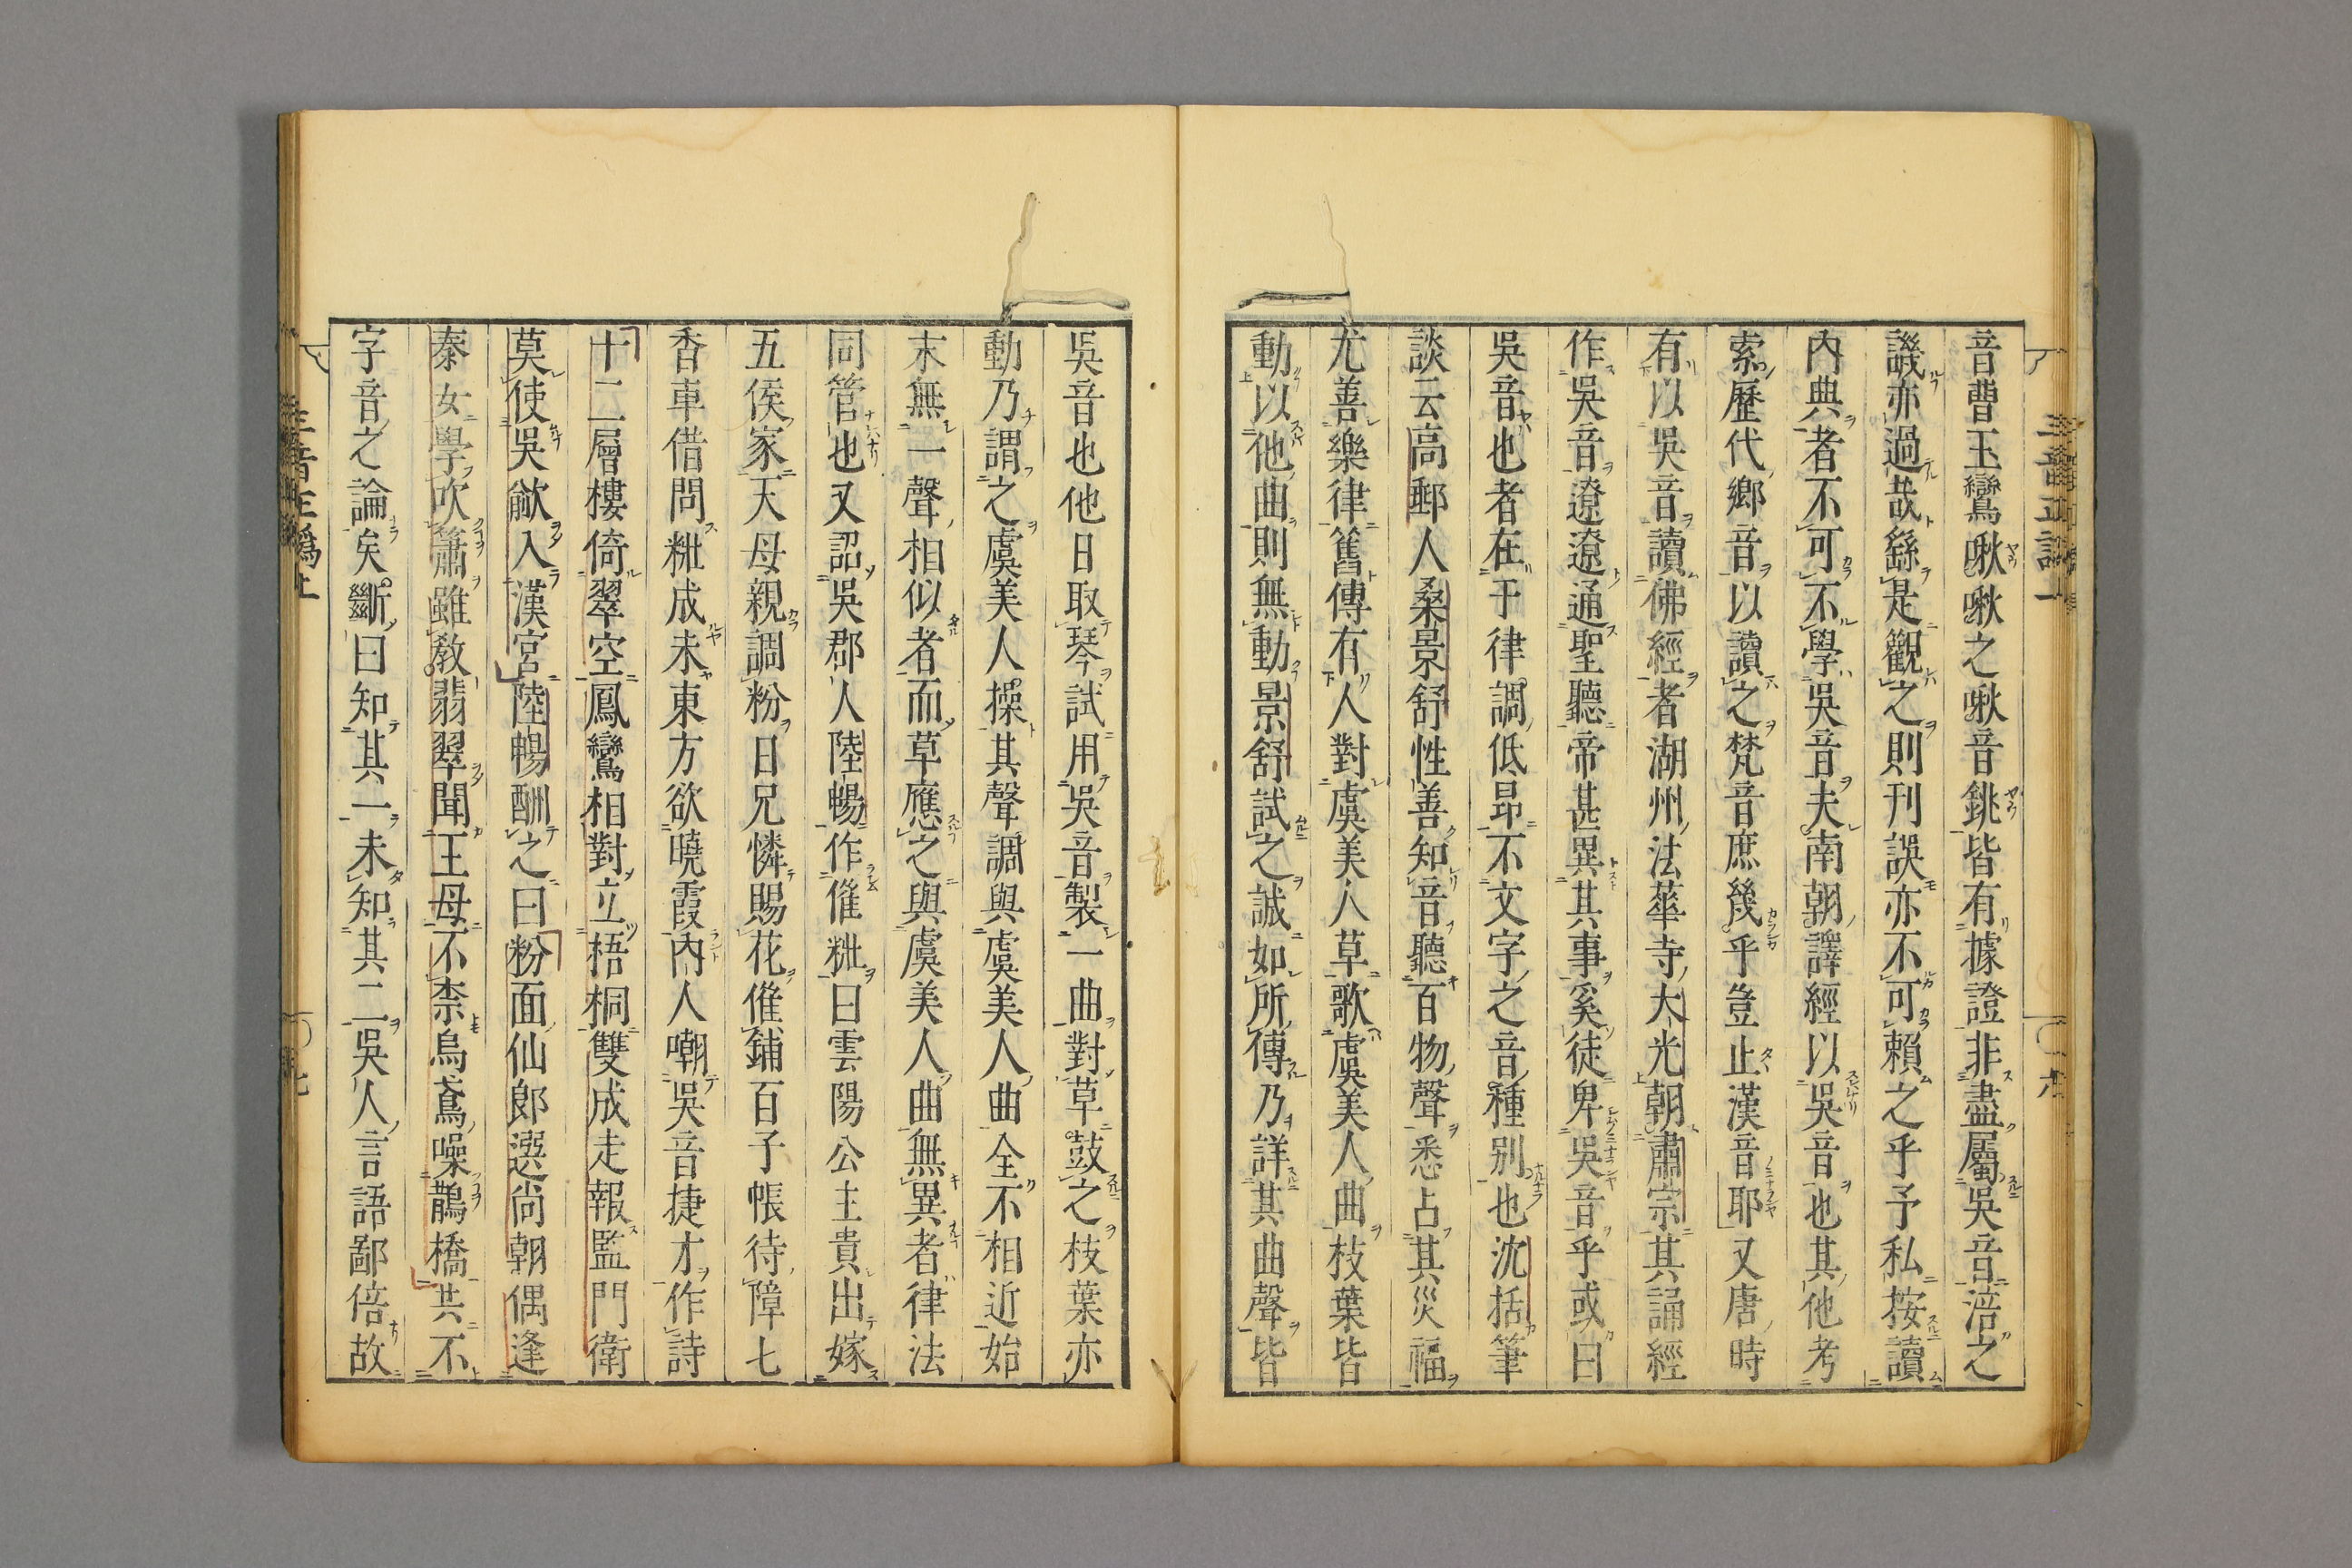 音曹玉鸞啾啾之啾音銚皆有據證非盡屬吳音涪之
譏亦過哉繇是觀之則刊誤亦不可賴之乎予私按讀
內典者不可不學吳音夫南朝譯經以吳音也其他考
索歷代鄉音以讀之梵音庶幾乎豈止漢音耶又唐時
有以吳音讀佛經者湖州法華寺大光朝肅宗其誦經
作吳音遼遼通聖聽帝甚異其事奚徒卑吳音乎或曰
吳音也者在于律調低昂不文字之音種別也沈括筆
談云高郵人桑景舒性善知音聽百物聲悉占其災福
尤善樂律舊傳有人對虞美人草歌虞美人曲枝葉皆
動以他曲則無動景舒試之誠如所傳乃詳其曲聲皆
吳音也他日取琴試用吳音製一曲對草鼓之枝葉亦
動乃謂之虞美人操其聲調與虞美人曲全不相近始
末無一聲相似者而草應之與虞美人曲無異者律法
同管也又詔吳郡人陸暢作催粃曰雲陽公主貴出嫁
五侯家天母親調粉日兄憐賜花催鋪百子帳待障七
香車借問粃成未東方欲曉霞內人嘲吳音捷才作詩
十二層樓倚翠空鳳鸞相對立梧桐雙成走報監門衛
莫使吳歈入漢宮陸暢酬之曰粉面仙郎選尚朝偶逢
秦女學吹簫雖教翡翠聞王母不柰烏鳶噪鵲橋共不
字音之論矣斷曰知其一未知其二吳人言語鄙倍故